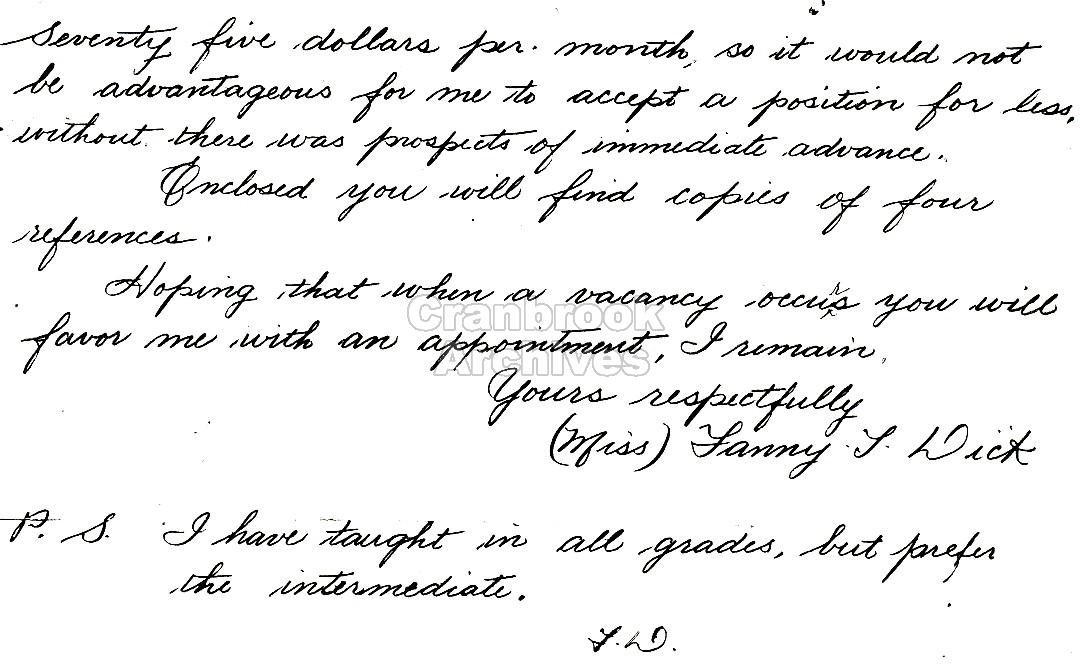 Seventy five dollars per. month, so it would not
be advantageous for me to accept a position for less,
without there was prospects of immediate advance.
Enclosed you will find copies of four
references.
Hoping that when a vacancy occurs you will
favor me with an appointment, I remain,
Cranbrook
Archives
Yours respectfully
(Miss) Fanny T. Dick
P. S. I have taught in all grades, but prefer
the intermediate.
F. D.